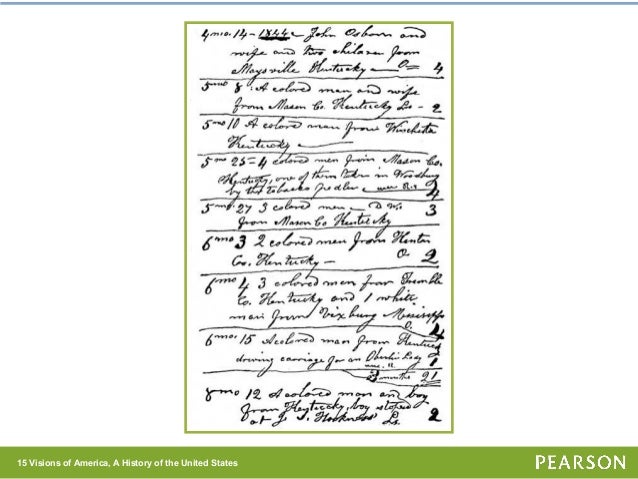 4 mo. 14 - 1844 - John Osborn and
wife and two children from
Maysville Kentucky - O = 4
5 mo 8 . A colored man and wife
from Mason Co. Kentucky Ls - 2
5 mo 10 A colored man from Winchester
Kentucky
5 mo 25 = 4 colored men from Mason Co.
Kentucky, one of them taken in Woodbury
by the tobacco pedler 4
5 mo. 27 3 colored men 3
from Mason Co Kentucky
6 mo 3 2 colored men from
Co. Kentucky - O. 2
6 mo 4 3 colored men from Trumble
Co. Kentucky and 1 white
man from Vixburg Mississippi
O. 4
6 mo. 15 A colored man from Kentucky
driving carriage for an Oberlin Lady 1
3 months 21
8 mo 12 A colored man and boy
from Keytucky, boy stoped
at Ls. 2
15 Visions of America, A History of the United States
PEARSON